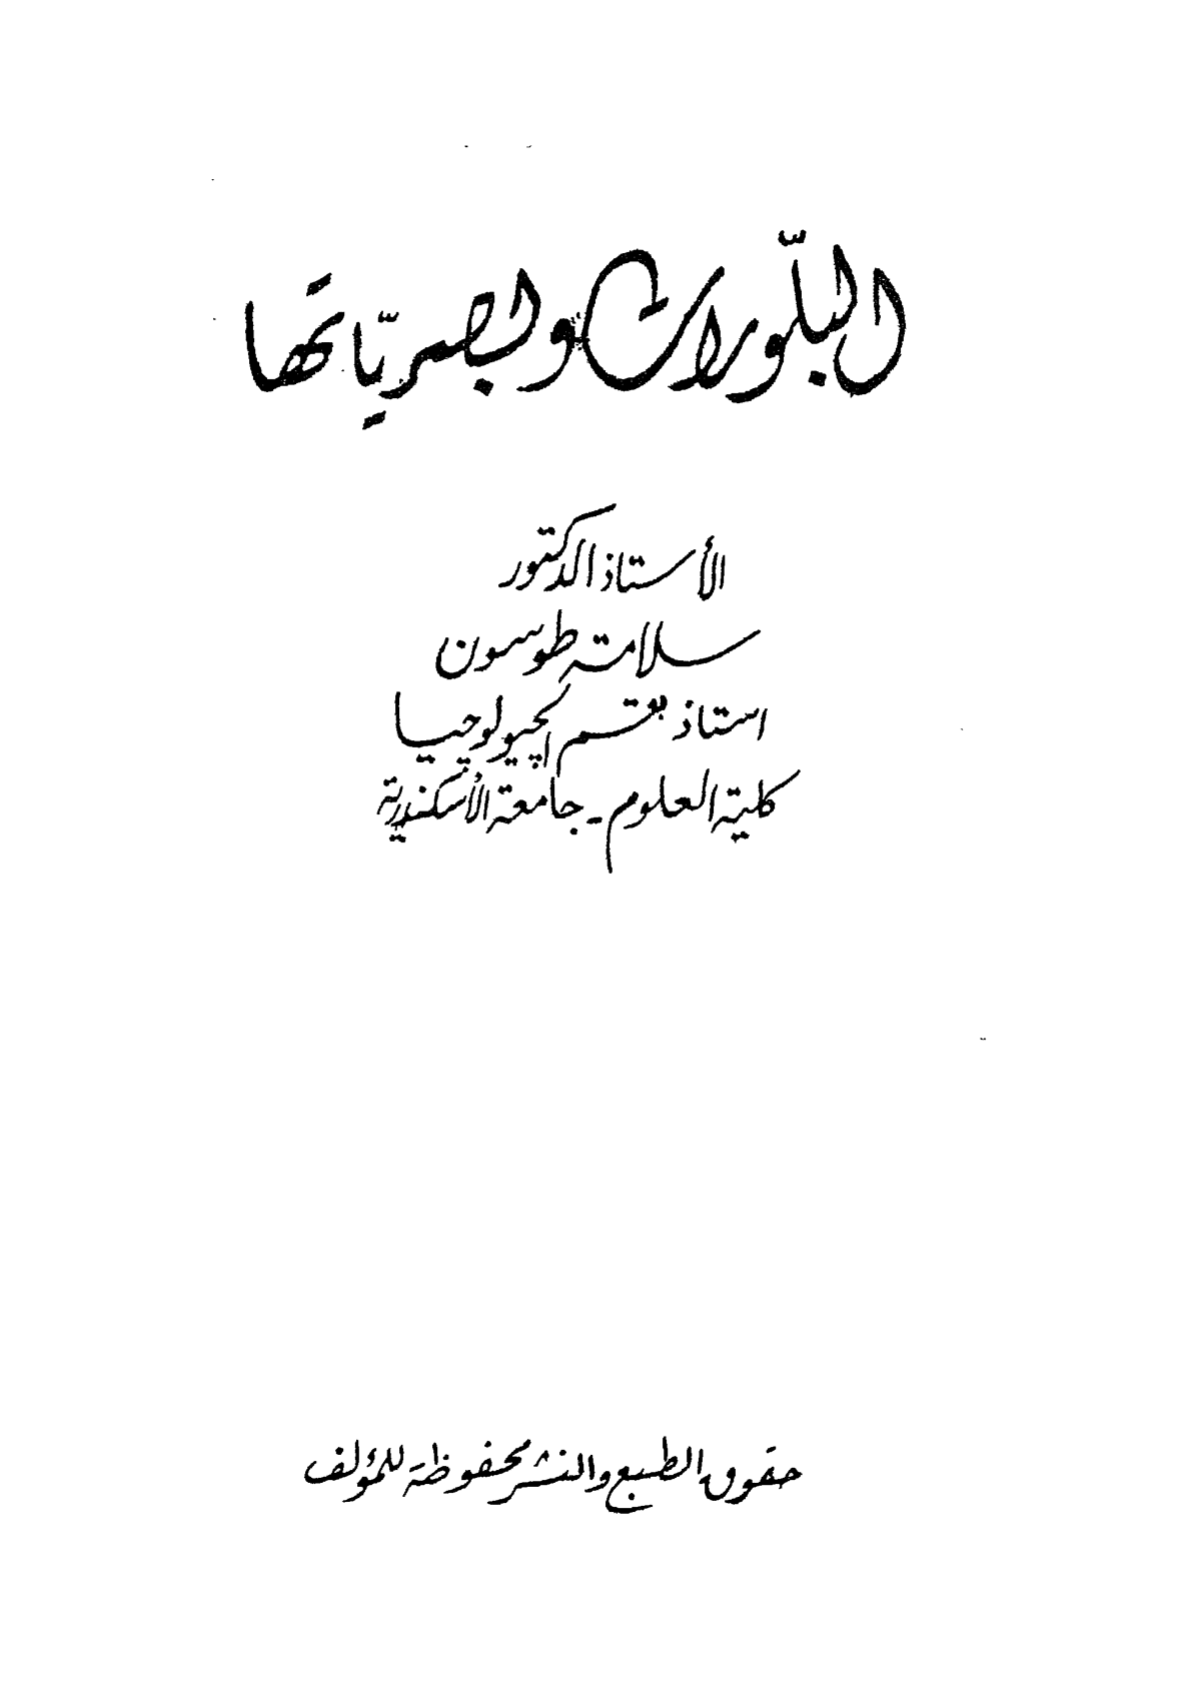 البلّورات وبصريّاتها
الأستاذ الدكتور
سلامة طوسون
استاذ بقسم الچيولوچيا
كلية العلوم - جامعة الأسكندرية
حقوق الطبع والنشر محفوظة للمؤلف